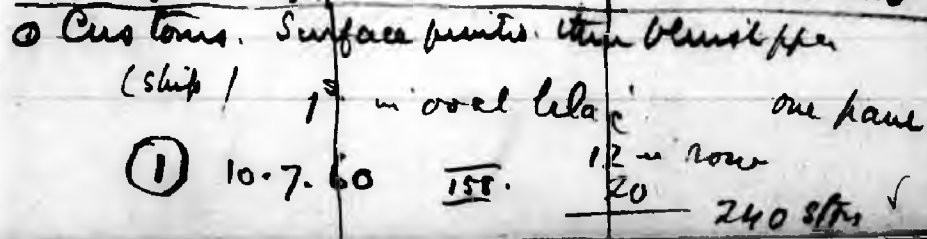 Customs. Surface printed. thin bluish paper
(ship) 1s in oval lilac one pane
1 10.7.60 158. 12 in row
20
240 stps